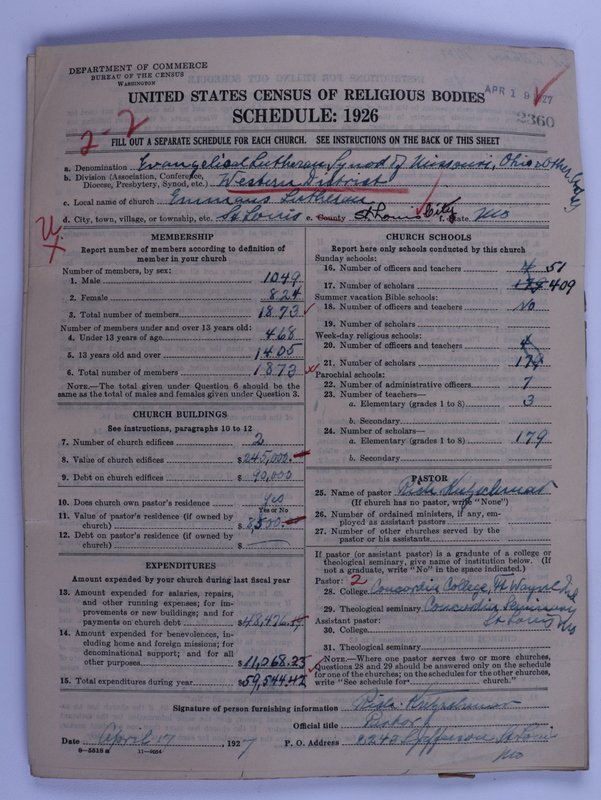 DEPARTMENT OF COMMERCE
BUREAU OF THE CENSUS
WASHINGTON
APR 19 1927
UNITED STATES CENSUS OF RELIGIOUS BODIES
SCHEDULE: 1926
2360
2-2
FILL OUT A SEPARATE SCHEDULE FOR EACH CHURCH. SEE INSTRUCTIONS ON THE BACK OF THIS SHEET
a. Denomination Evangelical Lutheran Synod of Missouri, Ohio & Other States
b. Division (Association, Conference, Diocese, Presbytery, Synod, etc.) Western District
c. Local name of church Emmaus Lutheran
d. City, town, village, or township, etc. St Louis e. County St. Louis City f. State Mo
MEMBERSHIP
Report number of members according to definition of
member in your church
Number of members, by sex:
1. Male 1049
2. Female 824
3. Total number of members 1873
Number of members under and over 13 years old:
4. Under 13 years of age 468
5. 13 years old and over 1405
6. Total number of members 1873
NOTE.—The total given under Question 6 should be the
same as the total of males and females given under Question 3.
CHURCH BUILDINGS
See instructions, paragraphs 10 to 12
7. Number of church edifices 2
8. Value of church edifices $245,000.
9. Debt on church edifices $ 90,000
10. Does church own pastor's residence yes
Yes or No
11. Value of pastor's residence (if owned by
church) $ 8,500.
12. Debt on pastor's residence (if owned by
church) $
EXPENDITURES
Amount expended by your church during last fiscal year
13. Amount expended for salaries, repairs,
and other running expenses; for im-
provements or new buildings; and for
payments on church debt
14. Amount expended for benevolences, in-
cluding home and foreign missions; for
denominational support; and for all
other purposes $11,068.25
15. Total expenditures during year $59,544.42
CHURCH SCHOOLS
Report here only schools conducted by this church
Sunday schools:
16. Number of officers and teachers 51
17. Number of scholars 409
Summer vacation Bible schools:
18. Number of officers and teachers No
19. Number of scholars
Week-day religious schools:
20. Number of officers and teachers 4
21. Number of scholars
Parochial schools:
22. Number of administrative officers 7
23. Number of teachers—
a. Elementary (grades 1 to 8) 3
b. Secondary
24. Number of scholars—
a. Elementary (grades 1 to 8) 179
b. Secondary
PASTOR
25. Name of pastor
(If church has no pastor, write "None")
26. Number of ordained ministers, if any, em-
ployed as assistant pastors
27. Number of other churches served by the
pastor or his assistants
If pastor (or assistant pastor) is a graduate of a college or
theological seminary, give name of institution below. (If
not a graduate, write "No" in the space indicated.)
Pastor: 2
28. College Concordia College, Ft Wayne Ind
29. Theological seminary Concordia Seminary
Assistant pastor: St Louis Mo
30. College
31. Theological seminary
NOTE.—Where one pastor serves two or more churches,
Questions 28 and 29 should be answered only on the schedule
for one of the churches; on the schedules for the other churches,
write "See schedule for church."
Signature of person furnishing information
Official title Pastor
Date April 17, 1927 P. O. Address Jefferson St Louis
Mo
8—5518 a 11—9084